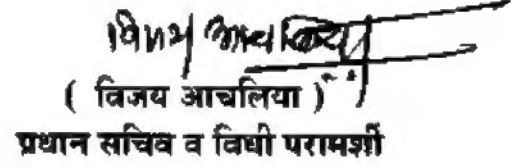 विजय आचलिया
( विजय आचलिया )
प्रधान सचिव व विधी परामर्शी